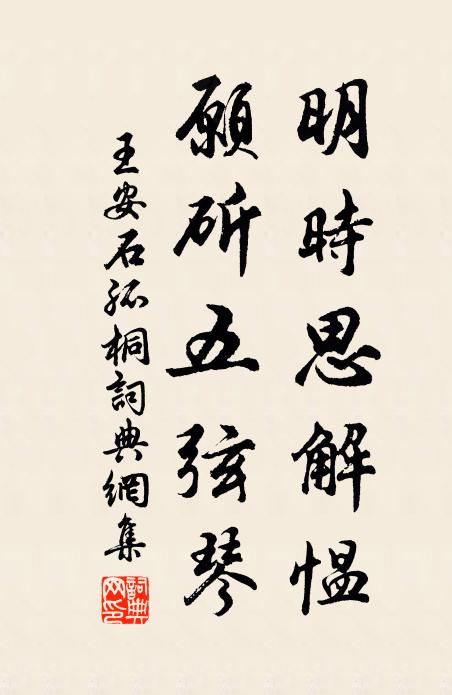 明時思解慍
願斫五弦琴
王安石孤桐詞典網集
詞典网印